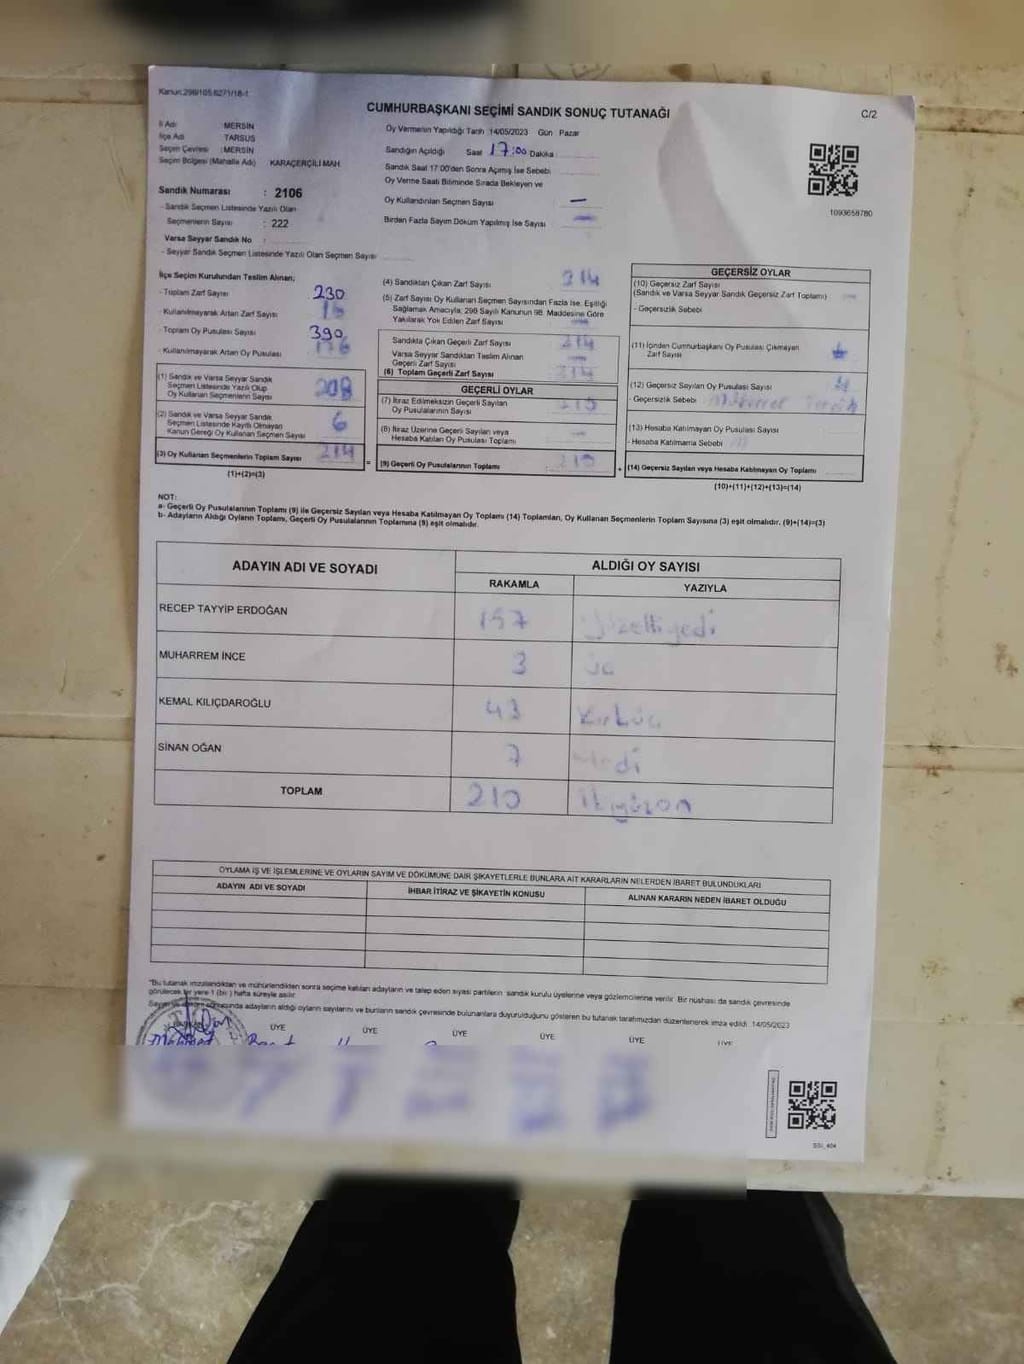 Kanun:298/105.6271/18-1
CUMHURBAŞKANI SEÇİMİ SANDIK SONUÇ TUTANAĞI
C/2
İl Adı : MERSİN
İlçe Adı : TARSUS
Seçim Çevresi : MERSİN
Seçim Bölgesi (Mahalle Adı) KARAÇERÇİLİ MAH.
Sandık Numarası : 2106
- Sandık Seçmen Listesinde Yazılı Olan
Seçmenlerin Sayısı : 222
Varsa Seyyar Sandık No :
- Seyyar Sandık Seçmen Listesinde Yazılı Olan Seçmen Sayısı
Oy Vermenin Yapıldığı Tarih 14/05/2023 Gün Pazar
Sandığın Açıldığı Saat 17:00 Dakika
Sandık Saat 17:00'den Sonra Açılmış İse Sebebi
Oy Verme Saati Bitiminde Sırada Bekleyen ve
Oy Kullandırılan Seçmen Sayısı —
Birden Fazla Sayım Döküm Yapılmış İse Sayısı —
1093658780
İlçe Seçim Kurulundan Teslim Alınan;
- Toplam Zarf Sayısı 230
- Kullanılmayarak Artan Zarf Sayısı 16
- Toplam Oy Pusulası Sayısı 390
- Kullanılmayarak Artan Oy Pusulası 176
(1) Sandık ve Varsa Seyyar Sandık
Seçmen Listesinde Yazılı Olup
Oy Kullanan Seçmenlerin Sayısı 208
(2) Sandık ve Varsa Seyyar Sandık
Seçmen Listesinde Kayıtlı Olmayan
Kanun Gereği Oy Kullanan Seçmen Sayısı 6
(3) Oy Kullanan Seçmenlerin Toplam Sayısı 214
(1)+(2)=(3)
(4) Sandıktan Çıkan Zarf Sayısı 214
(5) Zarf Sayısı Oy Kullanan Seçmen Sayısından Fazla İse, Eşitliği
Sağlamak Amacıyla; 298 Sayılı Kanunun 98. Maddesine Göre
Yakılarak Yok Edilen Zarf Sayısı —
Sandıkta Çıkan Geçerli Zarf Sayısı 214
Varsa Seyyar Sandıktan Teslim Alınan
Geçerli Zarf Sayısı —
(6) Toplam Geçerli Zarf Sayısı 214
GEÇERLİ OYLAR
(7) İtiraz Edilmeksizin Geçerli Sayılan
Oy Pusulalarının Sayısı 210
(8) İtiraz Üzerine Geçerli Sayılan veya
Hesaba Katılan Oy Pusulası Toplamı —
(9) Geçerli Oy Pusulalarının Toplamı 210
GEÇERSİZ OYLAR
(10) Geçersiz Zarf Sayısı
(Sandık ve Varsa Seyyar Sandık Geçersiz Zarf Toplamı) —
- Geçersizlik Sebebi
(11) İçinden Cumhurbaşkanı Oy Pusulası Çıkmayan
Zarf Sayısı
(12) Geçersiz Sayılan Oy Pusulası Sayısı 4
- Geçersizlik Sebebi Mükerrer
(13) Hesaba Katılmayan Oy Pusulası Sayısı
- Hesaba Katılmama Sebebi
(14) Geçersiz Sayılan veya Hesaba Katılmayan Oy Toplamı
(10)+(11)+(12)+(13)=(14)
NOT:
a- Geçerli Oy Pusulalarının Toplamı (9) ile Geçersiz Sayılan veya Hesaba Katılmayan Oy Toplamı (14) Toplamları, Oy Kullanan Seçmenlerin Toplam Sayısına (3) eşit olmalıdır. (9)+(14)=(3)
b- Adayların Aldığı Oyların Toplamı, Geçerli Oy Pusulalarının Toplamına (9) eşit olmalıdır.
ADAYIN ADI VE SOYADI ALDIĞI OY SAYISI
RAKAMLA YAZIYLA
RECEP TAYYİP ERDOĞAN 157 Yüzelliyedi
MUHARREM İNCE 3 üç
KEMAL KILIÇDAROĞLU 43 Kırküç
SİNAN OĞAN 7 Yedi
TOPLAM 210 İkiyüzon
OYLAMA İŞ VE İŞLEMLERİNE VE OYLARIN SAYIM VE DÖKÜMÜNE DAİR ŞİKAYETLERLE BUNLARA AİT KARARLARIN NELERDEN İBARET BULUNDUKLARI
ADAYIN ADI VE SOYADI İHBAR İTİRAZ VE ŞİKAYETİN KONUSU ALINAN KARARIN NEDEN İBARET OLDUĞU
"Bu tutanak imzalandıktan ve mühürlendikten sonra seçime katılan adayların ve talep eden siyasi partilerin sandık kurulu üyelerine veya gözlemcilerine verilir. Bir nüshası da sandık çevresinde
görülecek bir yere 1 (bir) hafta süreyle asılır.
sonucunda adayların aldığı oyların sayılarını ve bunların sandık çevresinde bulunanlara duyurulduğunu gösteren bu tutanak tarafımızdan düzenlenerek imza edildi. 14/05/2023
ÜYE ÜYE ÜYE ÜYE ÜYE ÜYE
SSİ_404